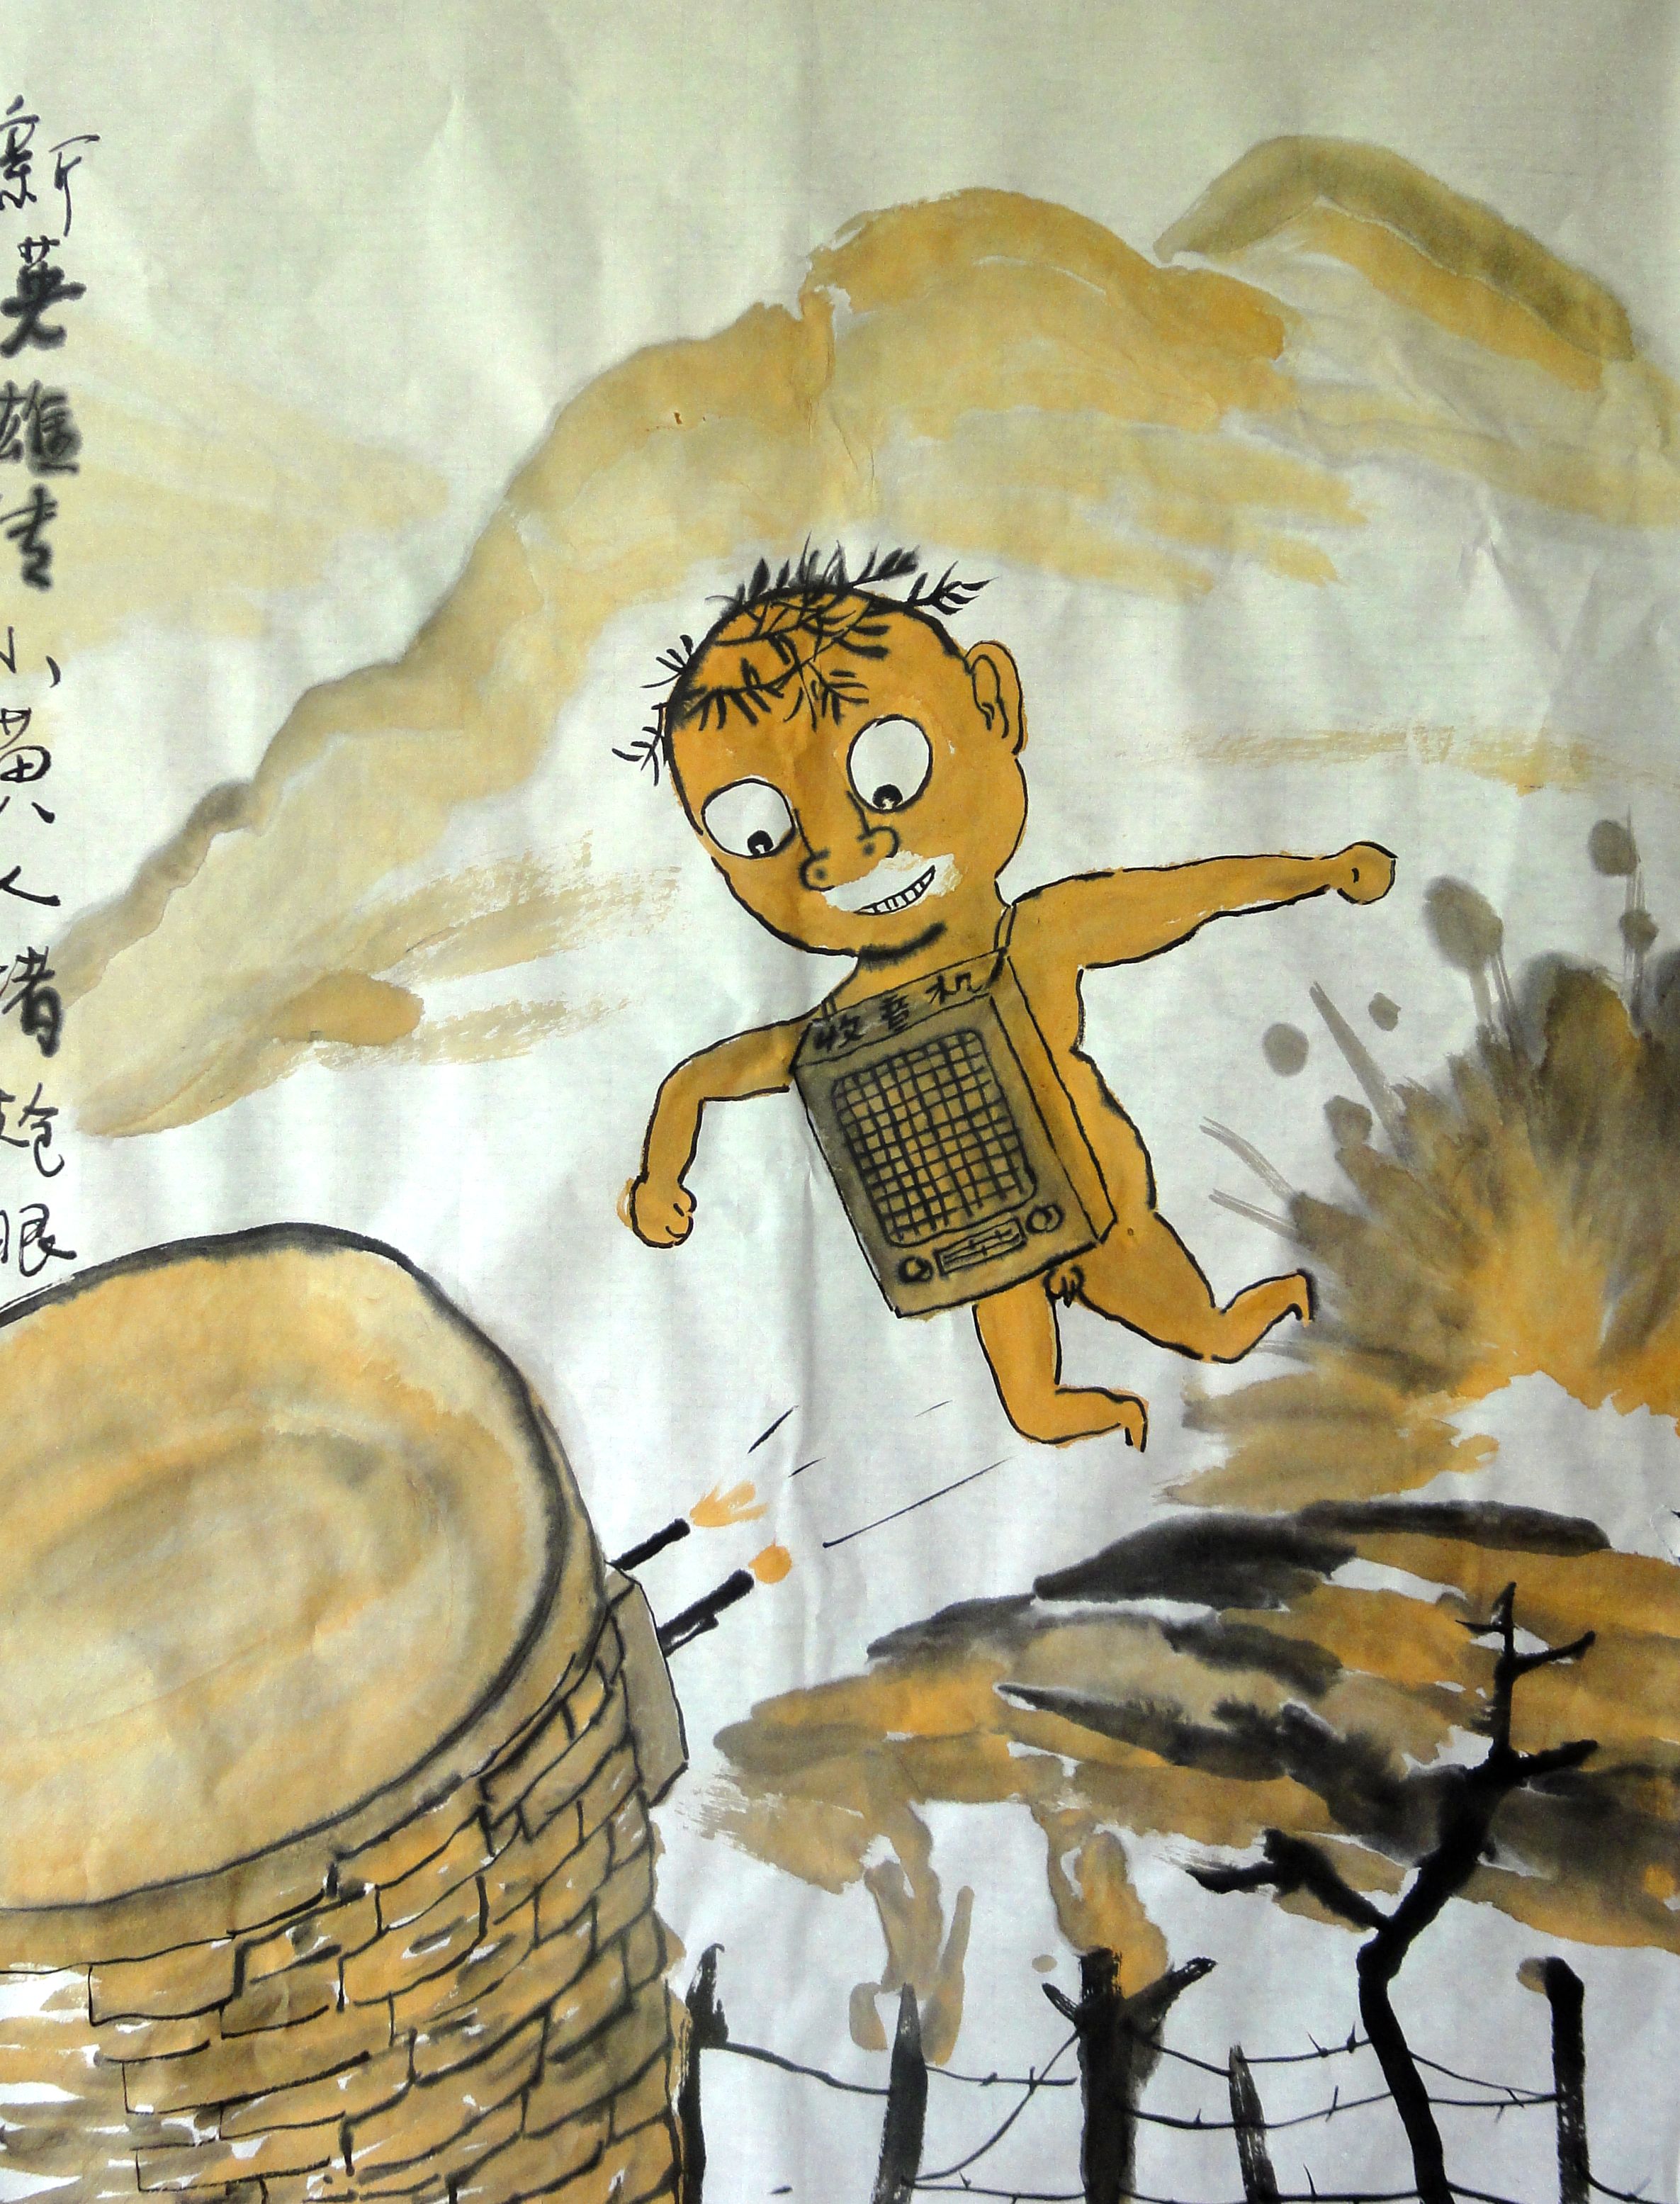 新英雄传小黄人堵枪眼
收音机